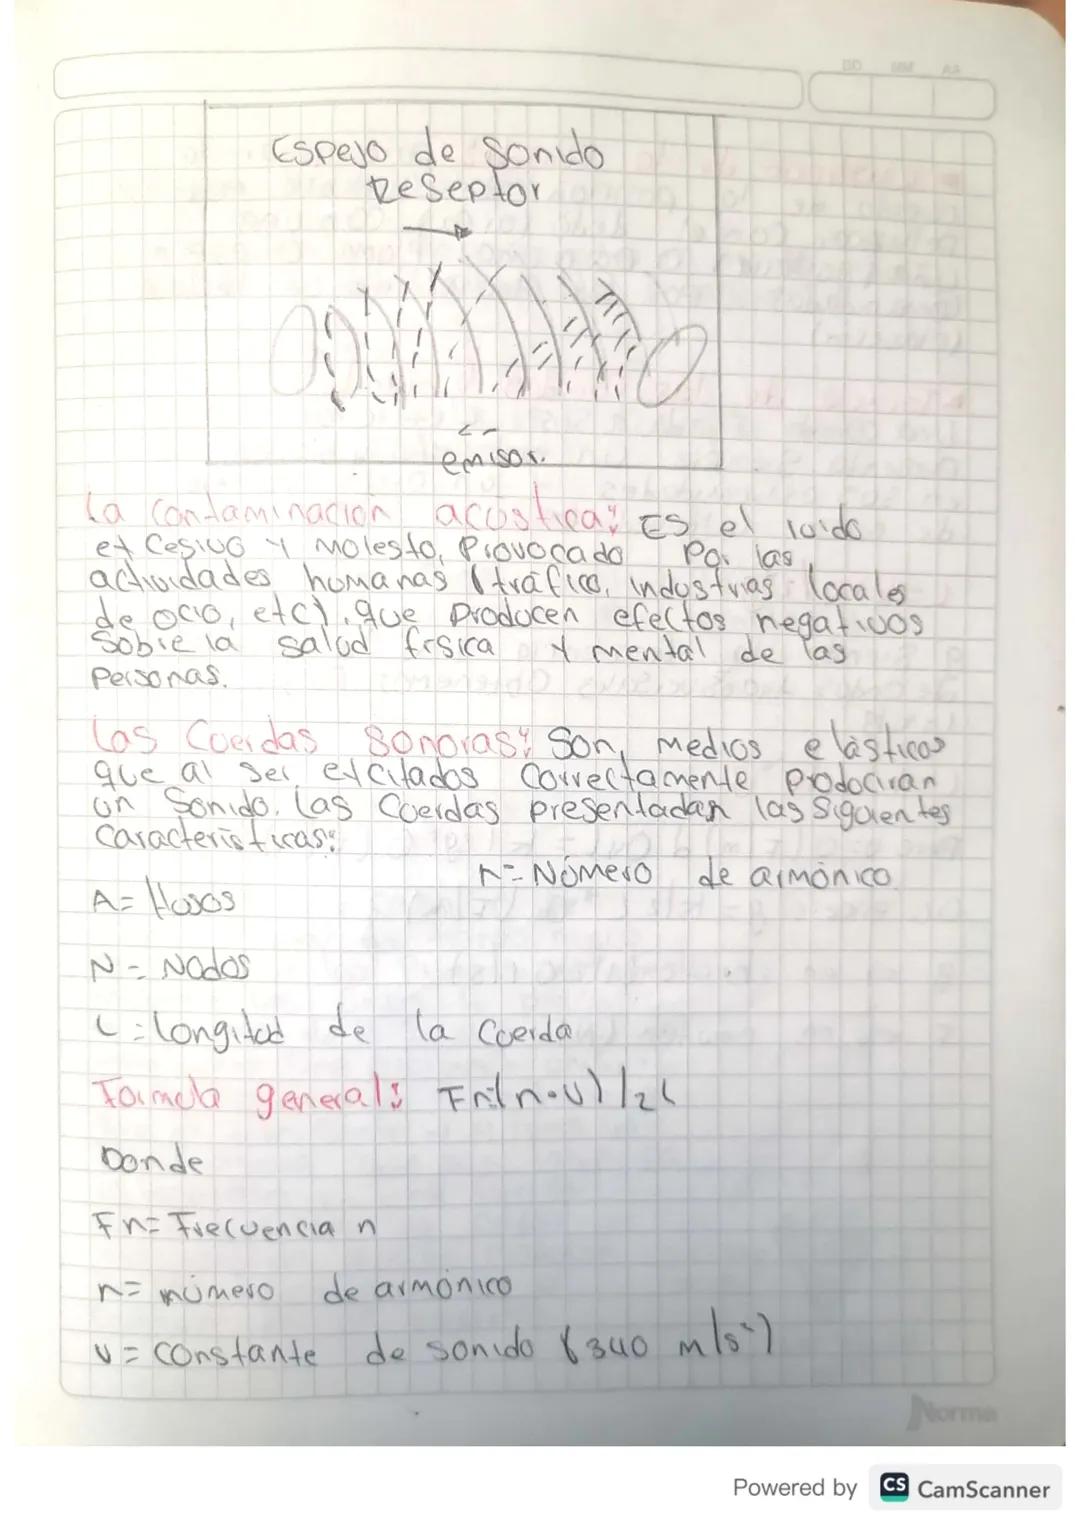 DD MM AA
Espejo de sonido
Reseptor
emisor.
La contaminación acustica: Es el ruido
excesivo y molesto, provocado por las
actividades humanas (tráfico, industrias locales
de ocio, etc), que producen efectos negativos
sobre la salud física y mental de las
personas.
Las cuerdas sonoras: Son, medios elásticos
que al ser excitados correctamente produciran
un sonido. Las cuerdas presentadan las siguientes
caracteristicas:
n= Número de armónico
A= Husos
N= Nodos
L=longitud de la cuerda
Formula general: Fn=(n.v)/2L
Donde
Fn= Frecuencia n
n= número de armónico
v= constante de sonido (340 m/s²)
Norma
Powered by CS CamScanner